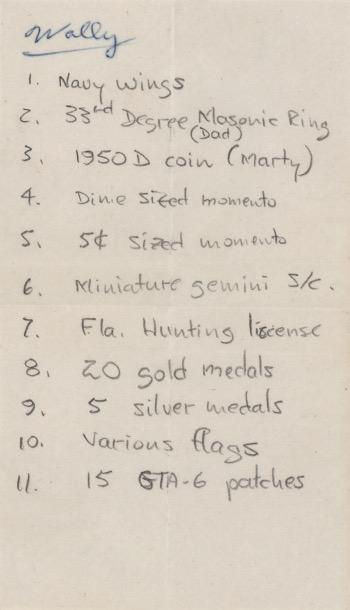 Wally
1. Navy wings
2. 33rd Degree Masonic Ring
(Dad)
3. 1950 D coin (Marty)
4. Dime sized momento
5. 5¢ sized momento
6. Miniature gemini S/C.
7. Fla. Hunting liscense
8. 20 gold medals
9. 5 silver medals
10. Various flags
11. 15 GTA-6 patches